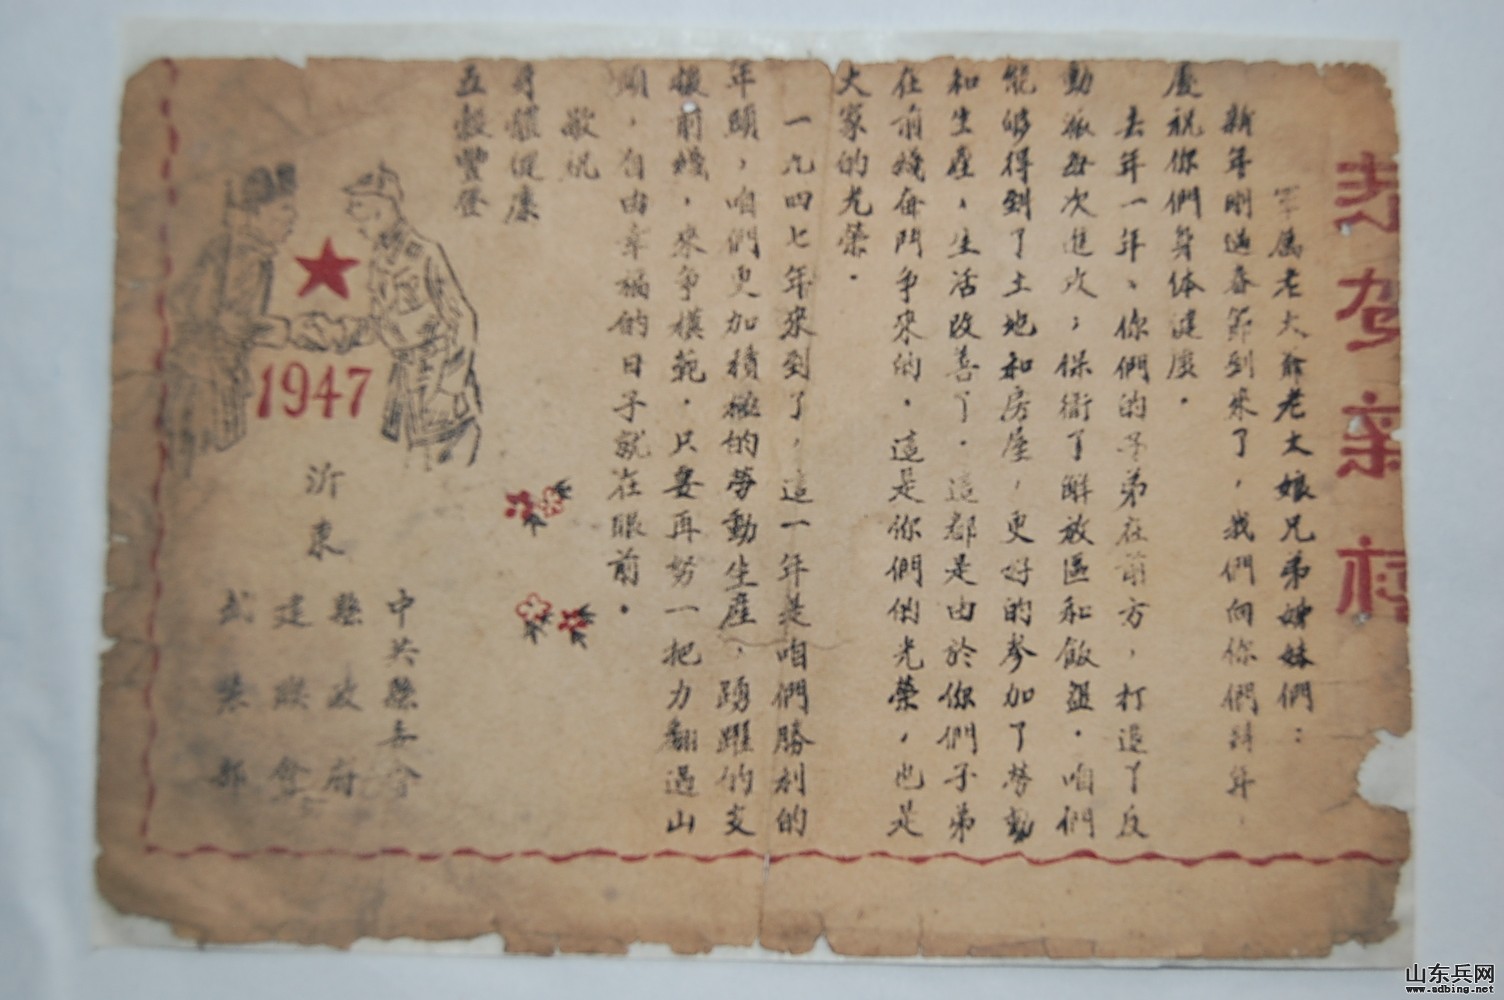 恭贺新禧
军属老大爷老大娘兄弟姊妹們：
新年剛過春節到來了，我們向你們拜年，
慶祝你們身体健康。
去年一年、你們的子弟在前方，打退了反
動派每次進攻；保衛了解放區和飯盌。咱們
能够得到了土地和房屋，更好的參加了勞動
和生產，生活改善了。這都是由於你們子弟
在前綫奋鬥争來的。這是你們的光榮，也是
大家的光榮。
一九四七年來到了，這一年是咱們勝利的
年頭，咱們更加積極的勞動生產，踴躍的支
援前綫，來争模範。只要再努一把力翻過山
頭，自由幸福的日子就在眼前。
敬祝
身體健康
五穀豐登
1947
沂東
中共縣委会
縣政府
建联會
武裝部
山东兵网
www.sdbing.net